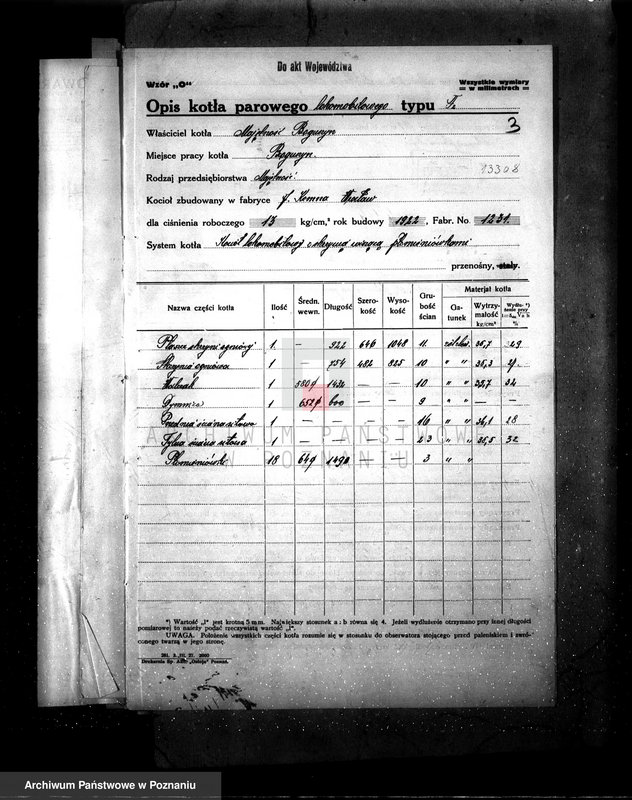 Do akt Województwa
Wzór „O“
Wszystkie wymiary
= w milimetrach =
Opis kotła parowego lokomobilowego typu
3
Właściciel kotła Majętność Boguszyn
Miejsce pracy kotła Boguszyn.
13308
Rodzaj przedsiębiorstwa Majętność.
Kocioł zbudowany w fabryce f. Kemna Wrocław
dla ciśnienia roboczego 13 kg/cm,² rok budowy 1922, Fabr. No. 1231.
System kotła Kocioł lokomobilowy z skrzynią wiszącą płomieniówkami
przenośny, stały.
Nazwa części kotła Ilość Średn. wewn. Długość Szerokość Wysokość Grubość ścian Materjał kotła Gatunek Wytrzymałość kg/cm²
Płaszcz skrzyni ogniowej 1. – 922 646 1048 11. 35,7 29
Skrzynia ogniowa 1. 754 482 825 10 " " 35,3
Walczak 1. 580 ϕ 1432 — — 10 " " 32
Dymnica 1. 652 ϕ 600 — — 9 " " — —
Przednia ściana sitowa 1. — — — — 16 " " 36,1 28
Tylna ściana sitowa 1. — — — — 23 " " 35,5 32
Płomieniówki 18 64 ϕ 1490 — — 3 " "
ARCHIWUM PAŃSTWOWE
W POZNANIU
*) Wartość „l" jest krotną 5 mm. Największy stosunek a : b równa się 4. Jeżeli wydłużenie otrzymano przy innej długości
pomiarowej to należy podać rzeczywistą wartość „l".
UWAGA. Położenie wszystkich części kotła rozumie się w stosunku do obserwatora stojącego przed paleniskiem i zwróconego twarzą w jego stronę.
Drukarnia Sp. Akc. „Ostoja" Poznań.
Archiwum Państwowe w Poznaniu